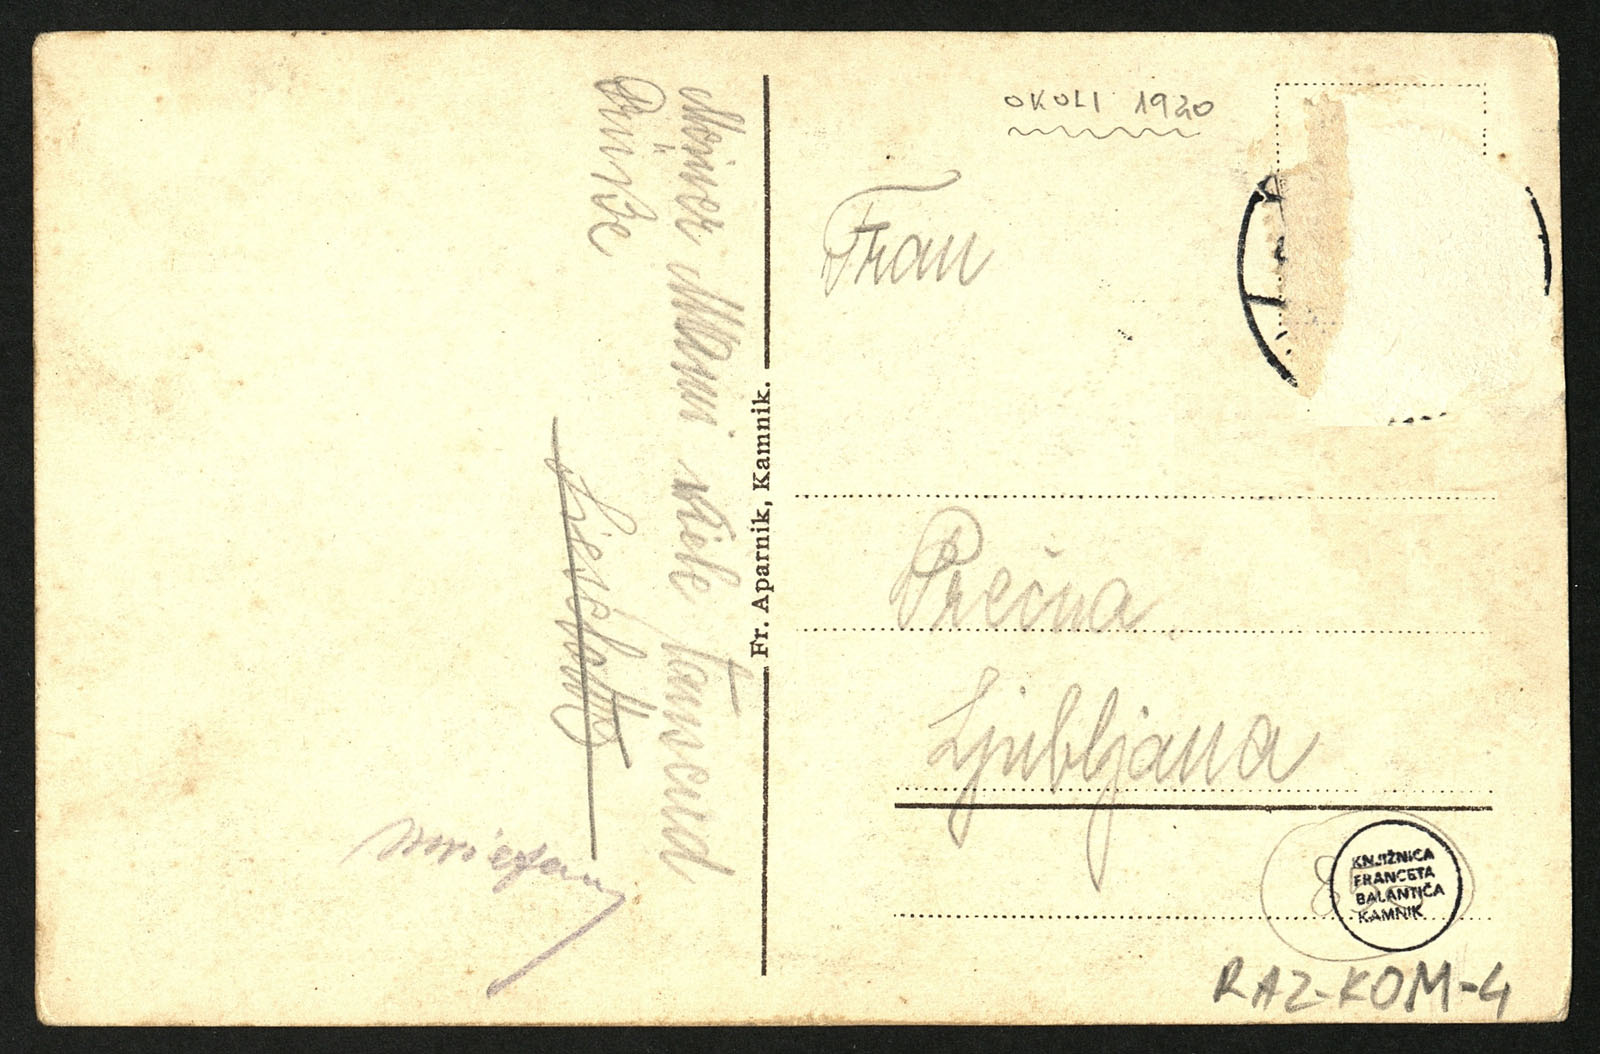 Meiner Mami viele Tausend
Küße
Lieselotte
Fr. Aparnik, Kamnik.
OKOLI 1920
Frau
Prečna
Ljubljana
KNJIŽNICA
FRANCETA
BALANTIČA
KAMNIK
RAZ-KOM-4